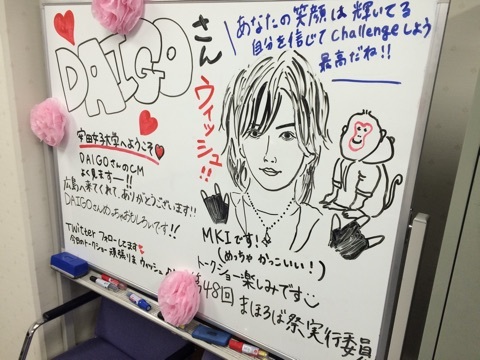 DAIGO
さん
ウィッシュ!!
あなたの笑顔は輝いてる
自分を信じてChallengeしよう
最高だね!!
安田女子大学へようこそ
DAIGOさんのCM
よく見ますー!!
広島へ来てくれて、ありがとうございます!!
DAIGOさんめっちゃおもしろいです!!
Twitter フォローしてます
今日のトークショー頑張りま ウィッシュ
MKIです!
(めっちゃかっこいい!)
トークショー楽しみです
第48回 まほろば祭実行委員